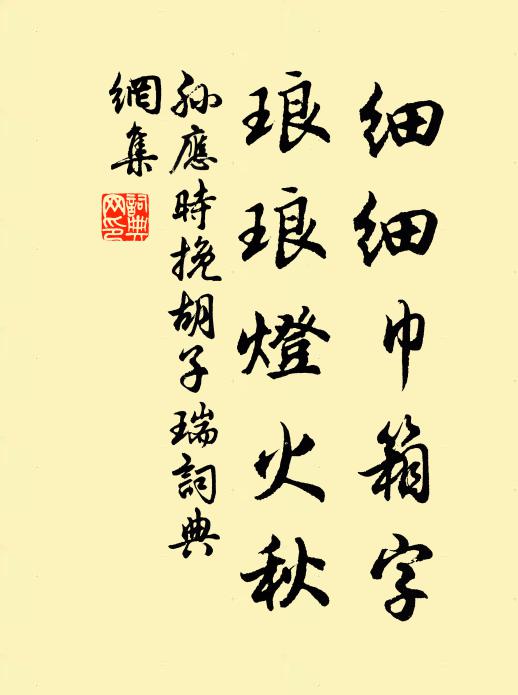 細細巾箱字
琅琅燈火秋
孫應時挽胡子瑞詞典
網集
詞典網印